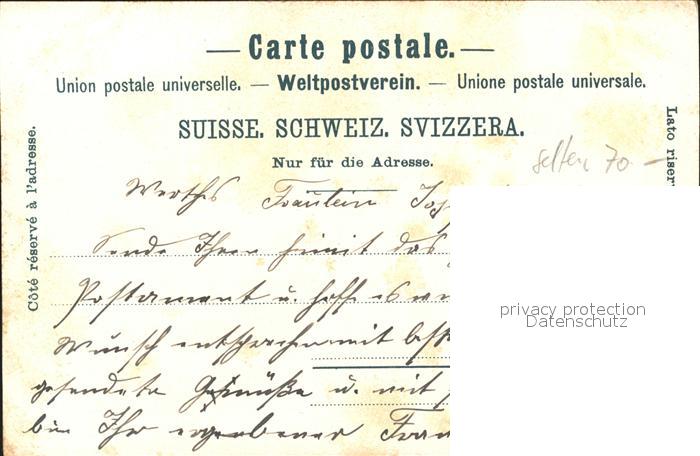 — Carte postale. —
Union postale universelle. — Weltpostverein. — Unione postale universale.
SUISSE. SCHWEIZ. SVIZZERA.
Nur für die Adresse.
selten 70 —
Côté réservé à l'adresse.
Lato riser
Werthes Fräulein
Sende Ihnen hiemit das
Postament u. hoffe es
Wunsch entsprechen mit
gesendete u. mit
bin Ihr ergebener
privacy protection
Datenschutz